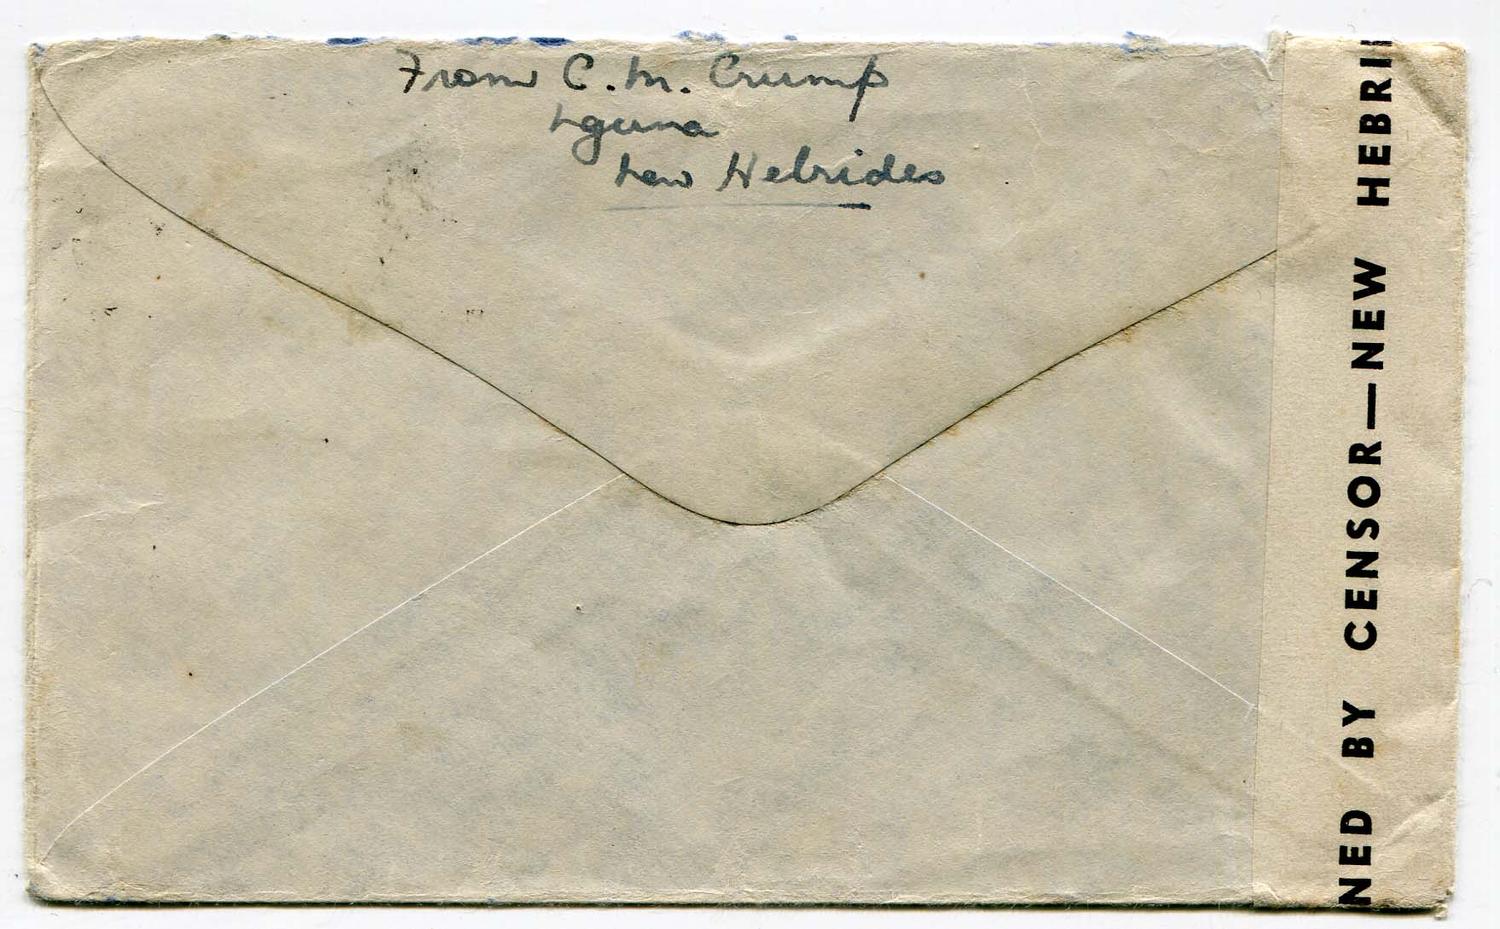 From C. M. Crump
Nguna
New Hebrides
NED BY CENSOR—NEW HEBRI